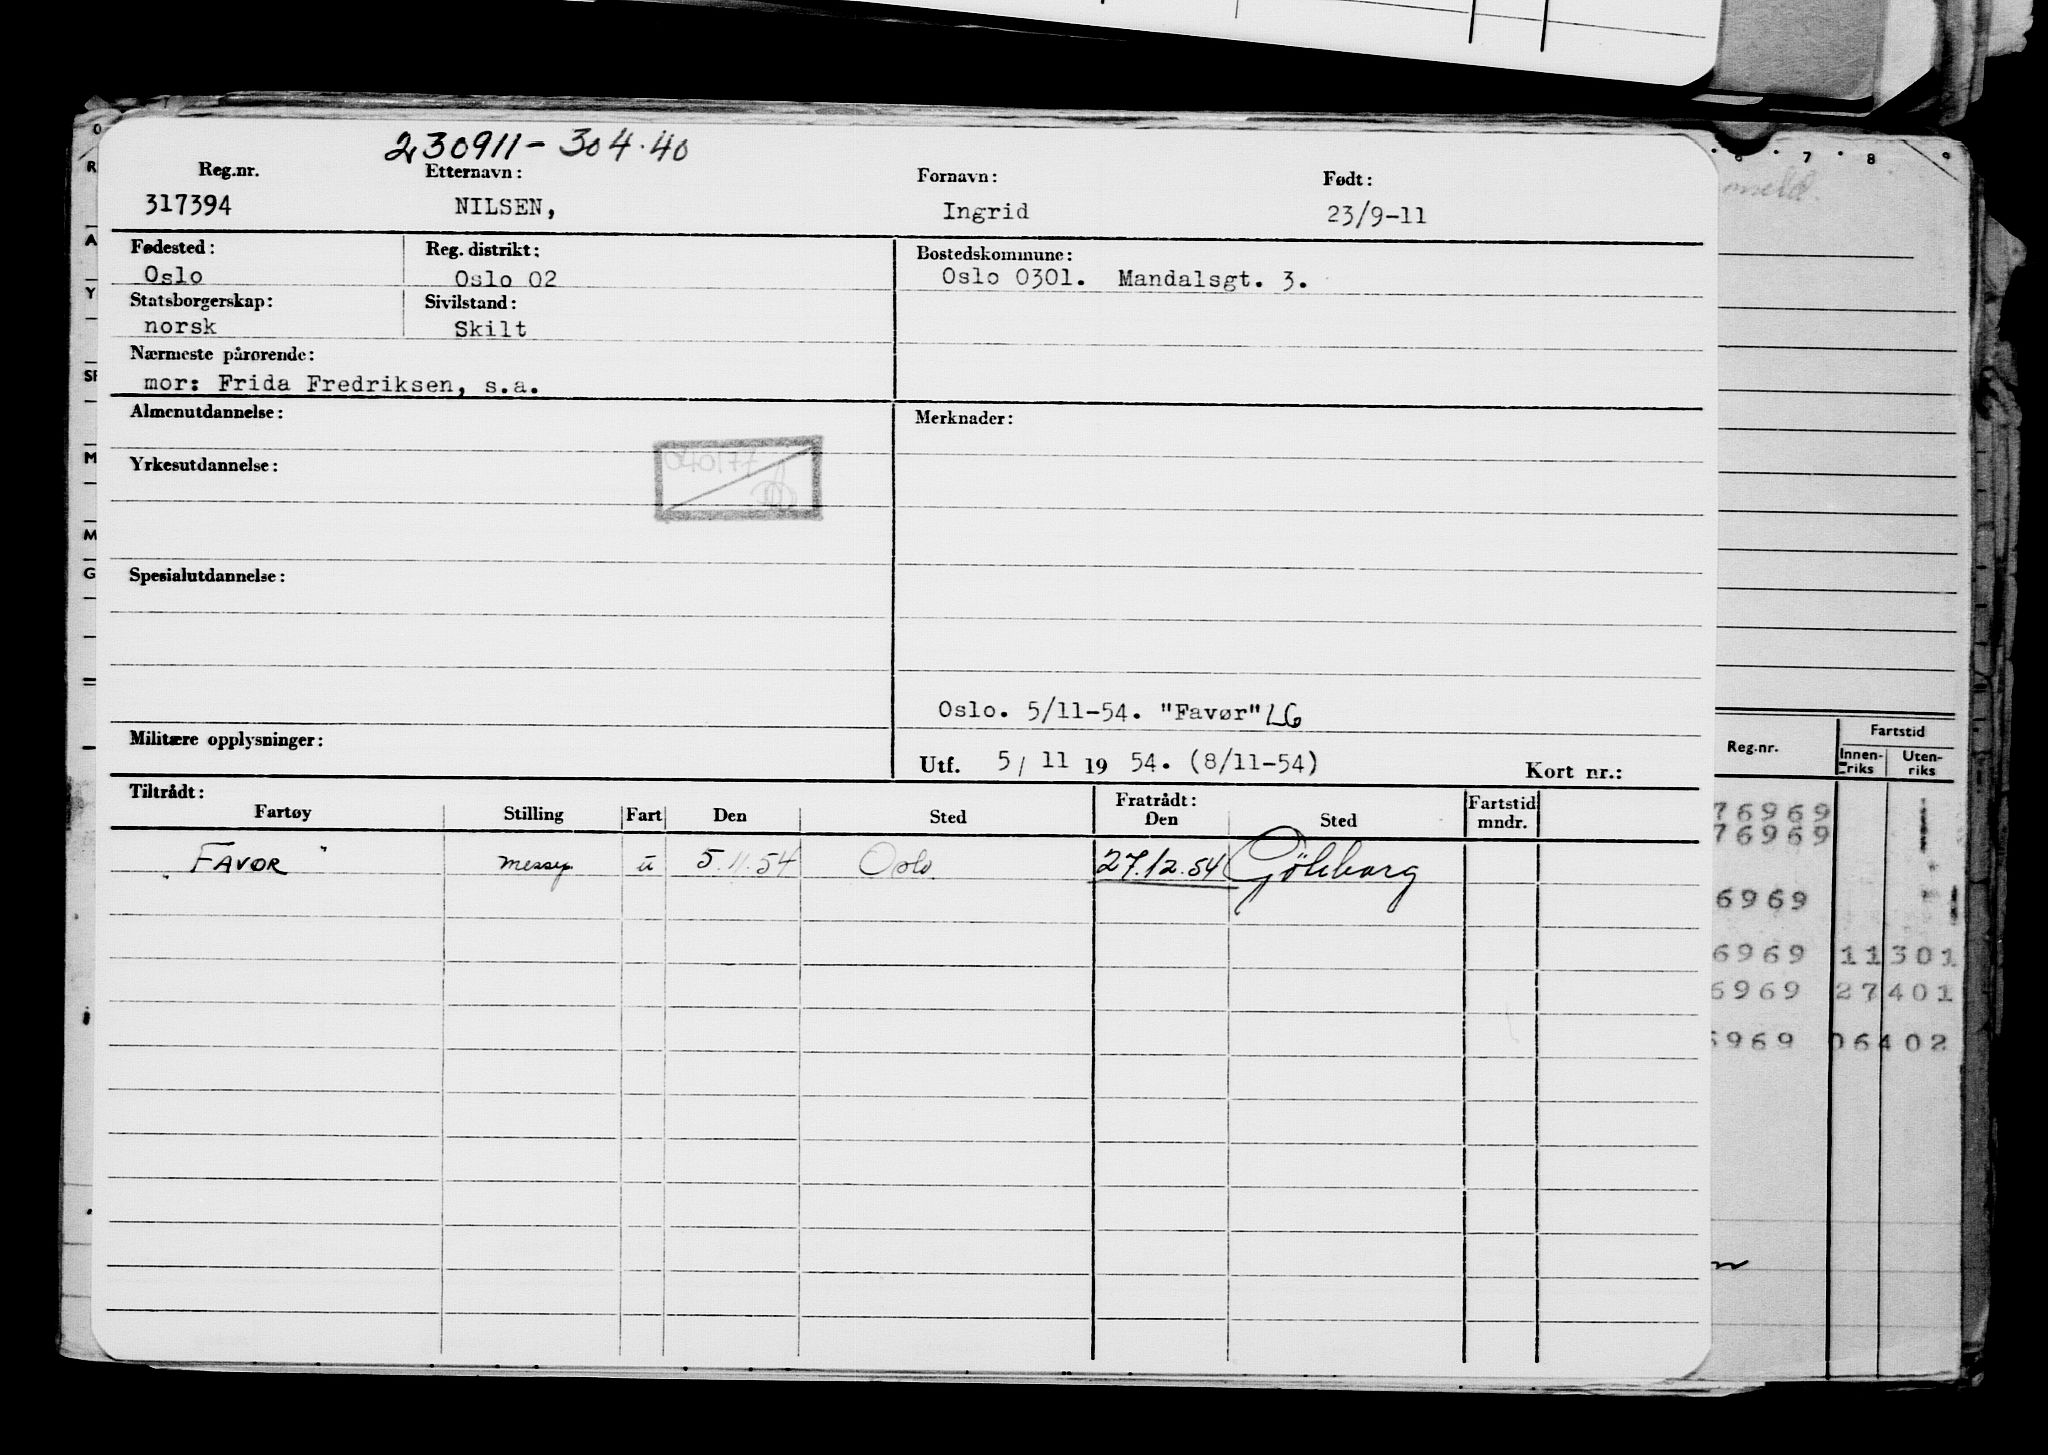 230911-304.40
Reg.nr. Etternavn: Fornavn: Født:
317394 NILSEN, Ingrid 23/9-11
Fødested: Reg. distrikt: Bostedskommune:
Oslo Oslo 02 Oslo 0301. Mandalsgt. 3.
Statsborgerskap: Sivilstand:
norsk Skilt
Nærmeste pårørende:
mor: Frida Fredriksen, s.a.
Almenutdannelse: Merknader:
040177
Yrkesutdannelse:
Spesialutdannelse:
Oslo. 5/11-54. "Favør" LG
Militære opplysninger:
Utf. 5/ 11 19 54. (8/11-54) Kort nr.:
Tiltrådt: Fratrådt: Fartstid
Fartøy Stilling Fart Den Sted Den Sted mndr.
"FAVØR" messep u 5.11.54 Oslo 27.12.54 Göteborg
6 7 8 9
Reg.nr. Fartstid
Innenriks Utenriks
76969
76969
6969
6969 11301
6969 27401
6969 06402